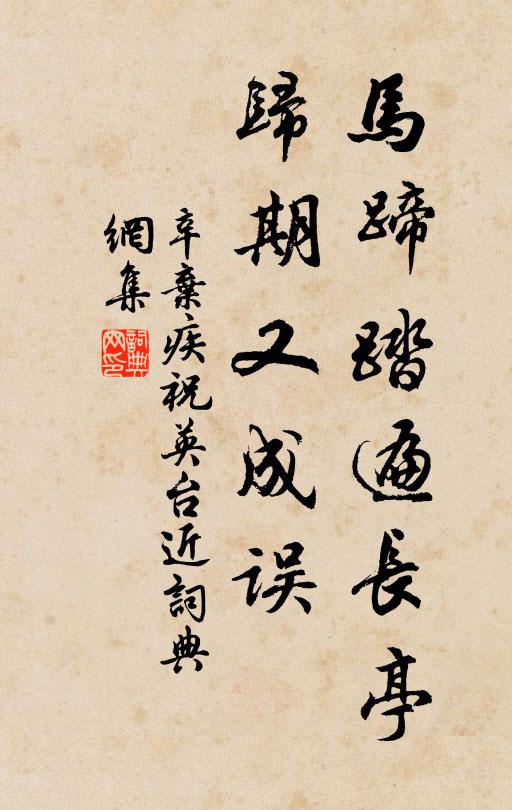 馬蹄踏遍長亭
歸期又成误
辛棄疾祝英台近詞典
網集
詞典
网印